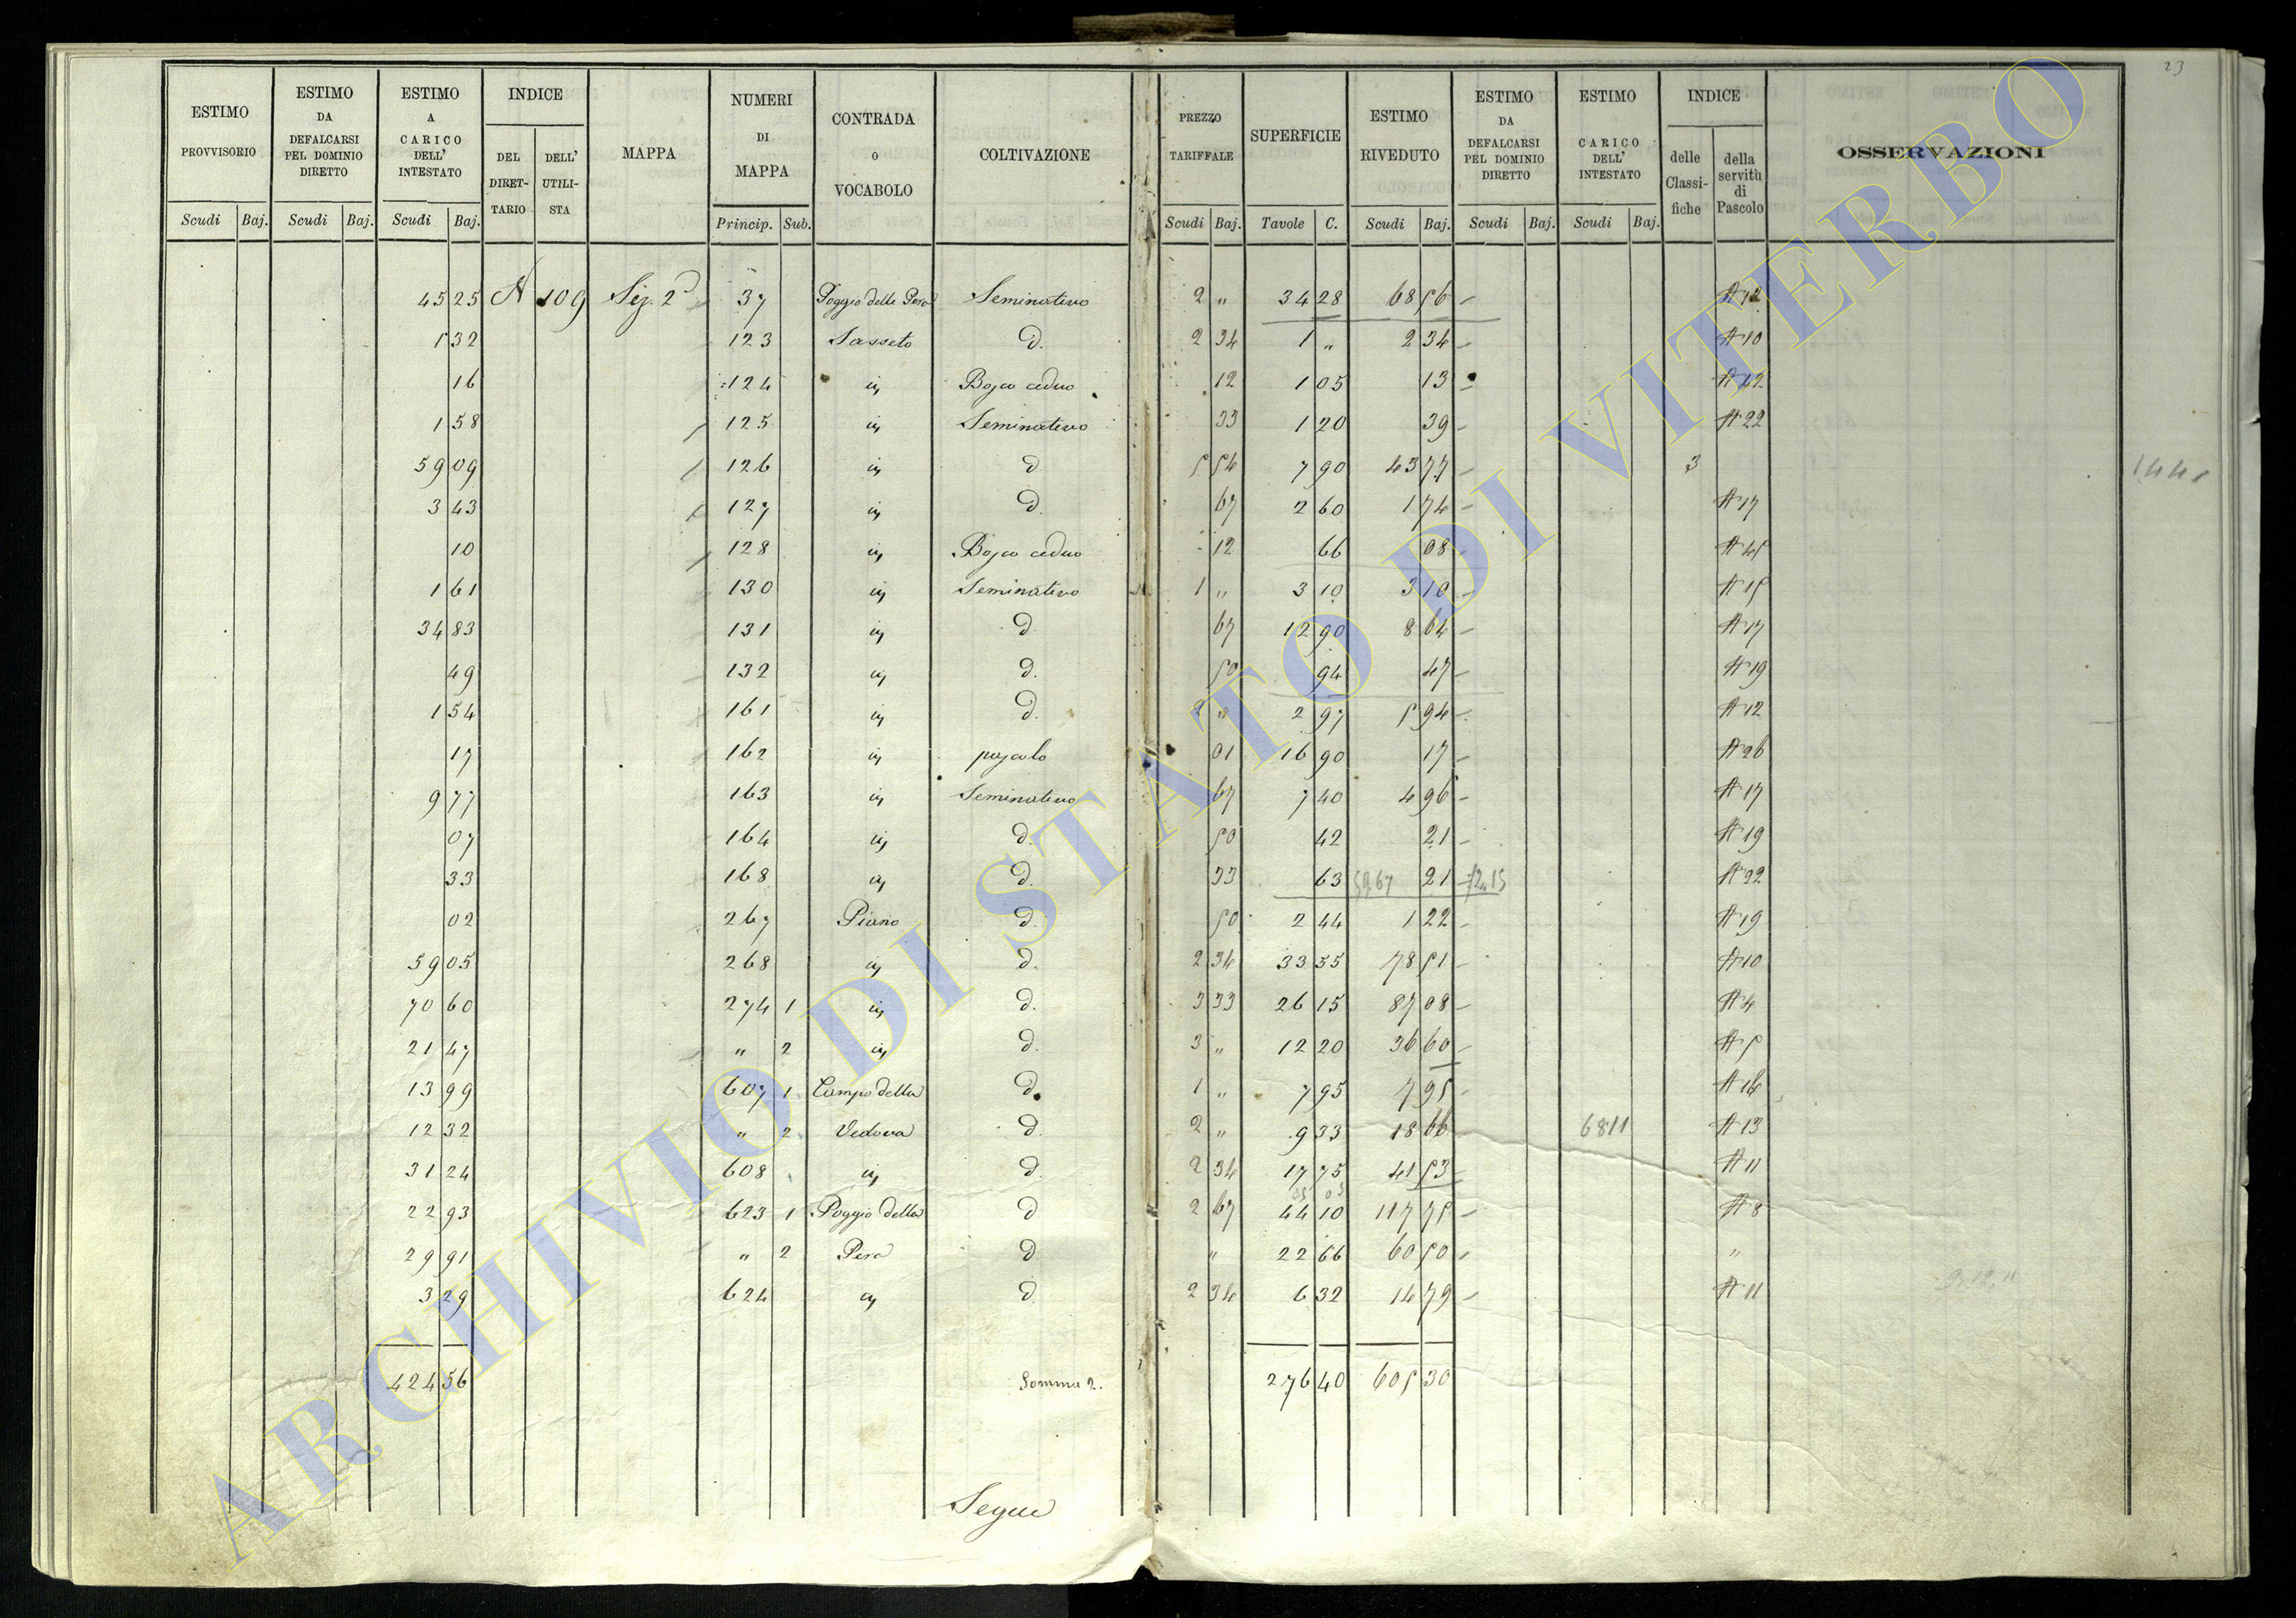 23
ESTIMO PROVVISORIO | ESTIMO DA DEFALCARSI PEL DOMINIO DIRETTO | ESTIMO A CARICO DELL' INTESTATO | INDICE | MAPPA | NUMERI DI MAPPA | CONTRADA O VOCABOLO | COLTIVAZIONE | PREZZO TARIFFALE | SUPERFICIE | ESTIMO RIVEDUTO | ESTIMO DA DEFALCARSI PEL DOMINIO DIRETTO | ESTIMO A CARICO DELL' INTESTATO | INDICE | OSSERVAZIONI
DEL DIRET-TARIO | DELL' UTILI-STA | delle Classi-fiche | della servitù di Pascolo
Scudi | Baj. | Scudi | Baj. | Scudi | Baj. | Princip. | Sub. | Scudi | Baj. | Tavole | C. | Scudi | Baj. | Scudi | Baj. | Scudi | Baj.
45 25 A 109 Sez. 2ª 37 Poggio della Pera Seminativo 2 " 34 28 68 56 A 12
1 32 123 Sasseto d. 2 34 1 " 2 34 A 10
16 124 in Bosco ceduo 12 1 05 13 A 42
1 58 125 in Seminativo 33 1 20 39 A 22
59 09 126 in d 5 54 7 90 43 77 3 144
3 43 127 in d. 67 2 60 1 74 A 17
10 128 in Bosco ceduo 12 66 08 A 45
1 61 130 in Seminativo 1 " 3 10 3 10 A 15
34 83 131 in d 67 12 90 8 64 A 17
49 132 in d. 50 94 47 A 19
1 54 161 in d. 2 " 2 97 5 94 A 12
17 162 in pascolo 01 16 90 17 A 26
9 77 163 in Seminativo 67 7 40 4 96 A 17
07 164 in d. 50 42 21 A 19
33 168 in d. 33 63 59 67 21 A 22
02 267 Piano d. 50 2 44 1 22 A 19
59 05 268 in d. 2 34 33 55 78 51 A 10
70 60 274 1 in d. 3 33 26 15 87 08 A 4
21 47 " 2 in d. 3 " 12 20 36 60 A 5
13 99 607 1 Campo della d. 1 " 7 95 7 95 A 16
12 32 " 2 Vedova d. 2 " 9 33 18 66 68 11 A 13
31 24 608 in d. 2 34 17 75 41 53 A 11
22 93 623 1 Poggio della d 2 67 44 10 117 75 A 8
29 91 " 2 Pera d. " 22 66 60 50 "
3 29 624 in d 2 34 6 32 14 79 A 11
424 56 Somma 2. 276 40 605 30
Segue
ARCHIVIO DI STATO DI VITERBO